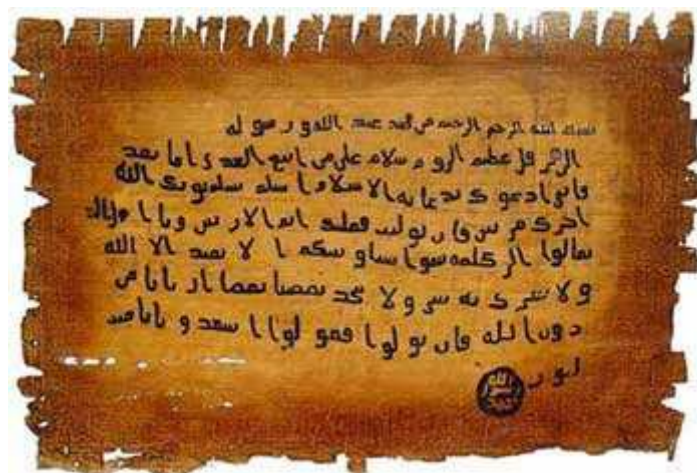 بسم الله الرحمن الرحيم من محمد عبد الله ورسوله
الى هرقل عظيم الروم سلام على من اتبع الهدى اما بعد
فانى ادعوك بدعاية الاسلام اسلم تسلم يوتك الله
اجرك مرتين فان توليت فعليك اثم الاريسيين ويا اهل الكتاب
تعالوا الى كلمة سوا بيننا وبينكم الا نعبد الا الله
ولا نشرك به شيئا ولا يتخذ بعضنا بعضا اربابا من
دون الله فان تولوا فقولوا اشهدوا بانا مس
لمون
الله
رسول
محمد